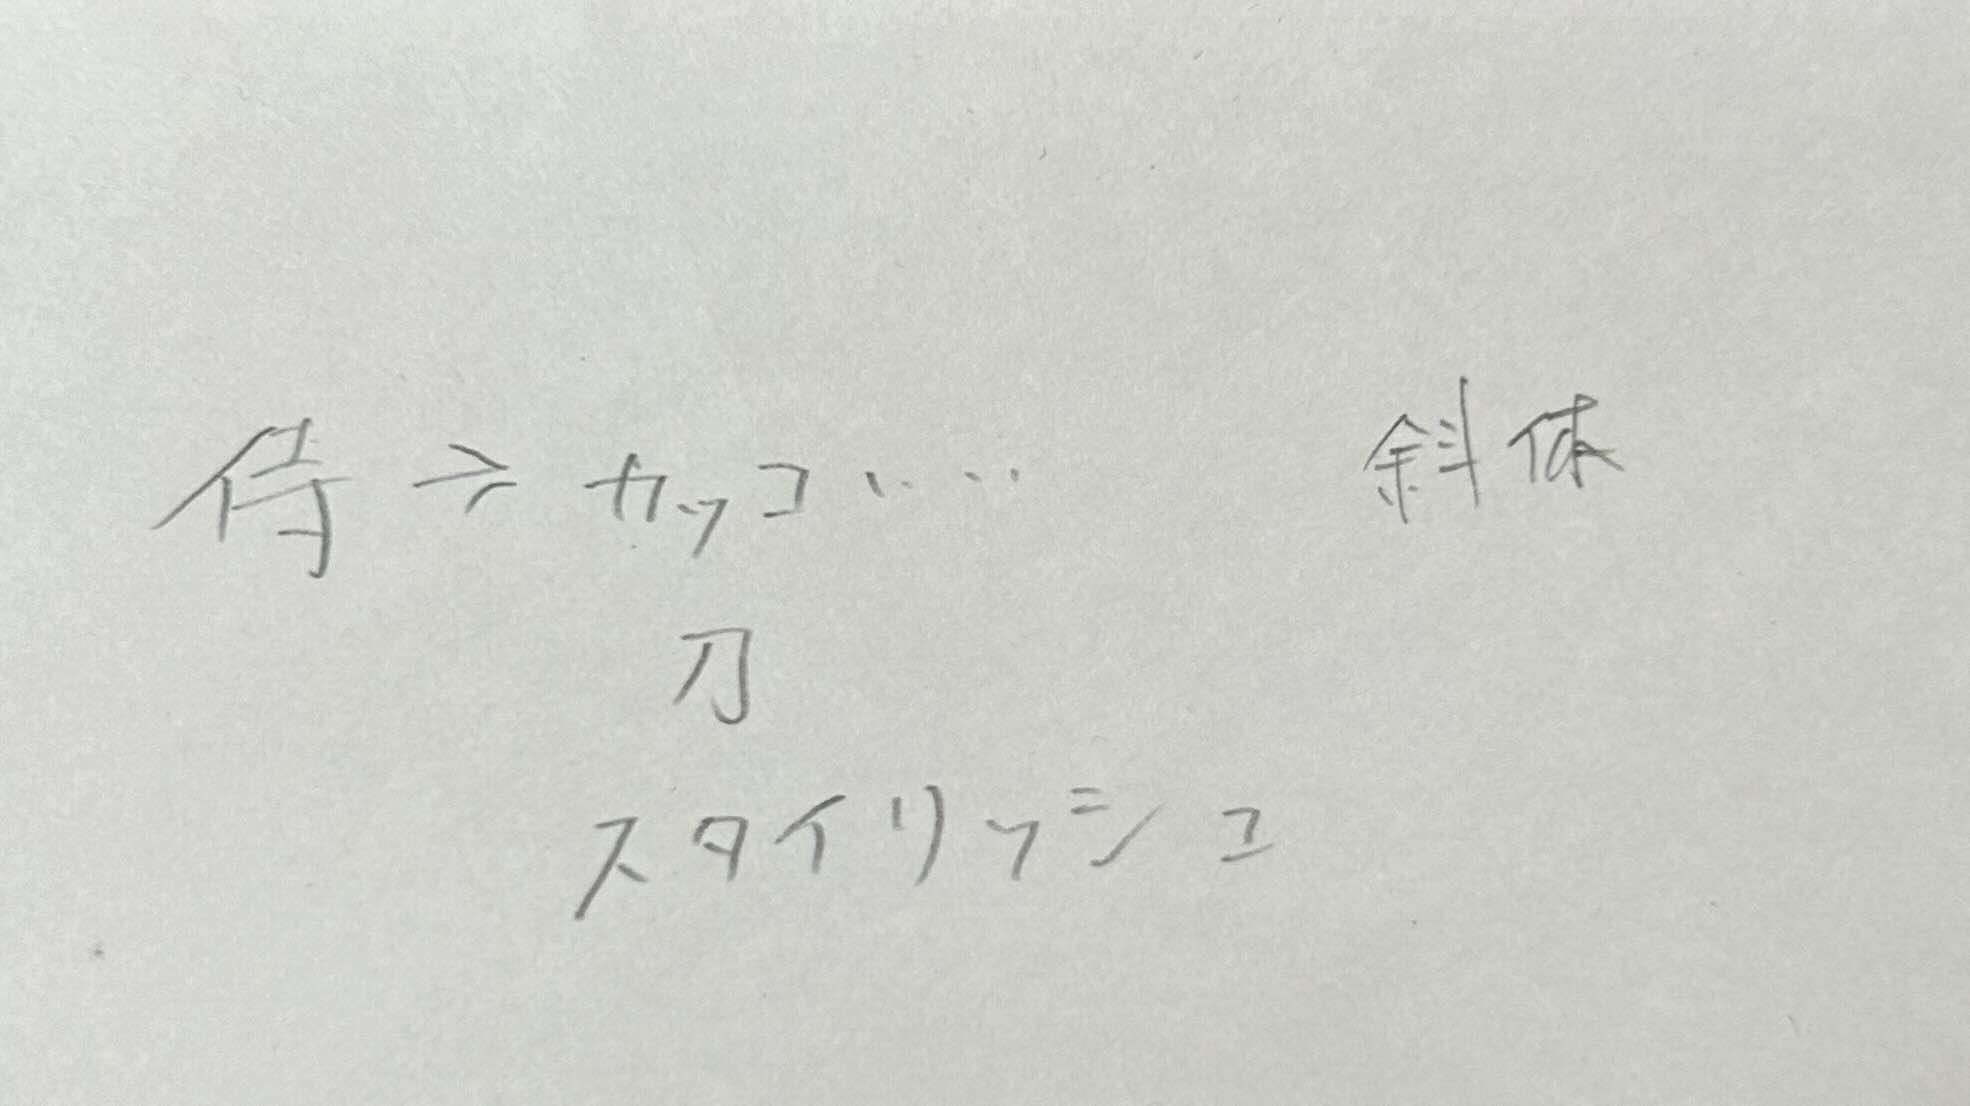 侍→カッコ‥‥ 斜体
刀
スタイリッシュ